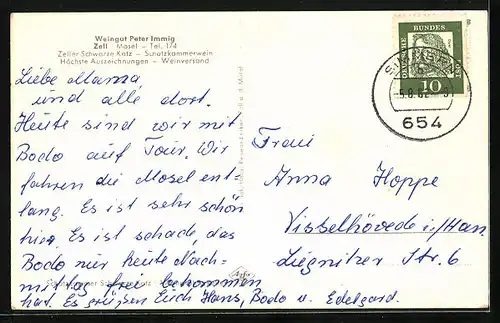 Weingut Peter Immig
Zell Mosel - Tel. 174
Zeller Schwarze Katz - Schatzkammerwein
Höchste Auszeichnungen - Weinversand
Liebe Mama
und alle dort.
Heute sind wir mit
Bodo auf Tour. Wir
fahren die Mosel ent-
lang. Es ist sehr schön
hier. Es ist schade, das
Bodo nur heute Nach-
mittag frei bekommen
hat. Es grüßen Euch Hans, Bodo u. Edelgard.
DEUTSCHE BUNDESPOST
10
654
Frau
Anna Hoppe
Visselhövede i/Han.
Liegnitzer Str. 6